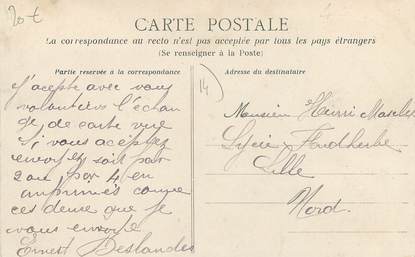 20€
4
CARTE POSTALE
La correspondance au recto n'est pas acceptée par tous les pays étrangers
(Se renseigner à la Poste)
Partie réservée à la correspondance
Adresse du destinataire
14
J'accepte avec vous
volontiers l'échan
ge, de carte vue
Si vous acceptez
envoyez soit par
2 ou par 4 en
imprimés comme
ces deux que je
vous envoie
Ernest Deslandes
Monsieur Henri
Lycée Faidherbe
Lille
Nord.